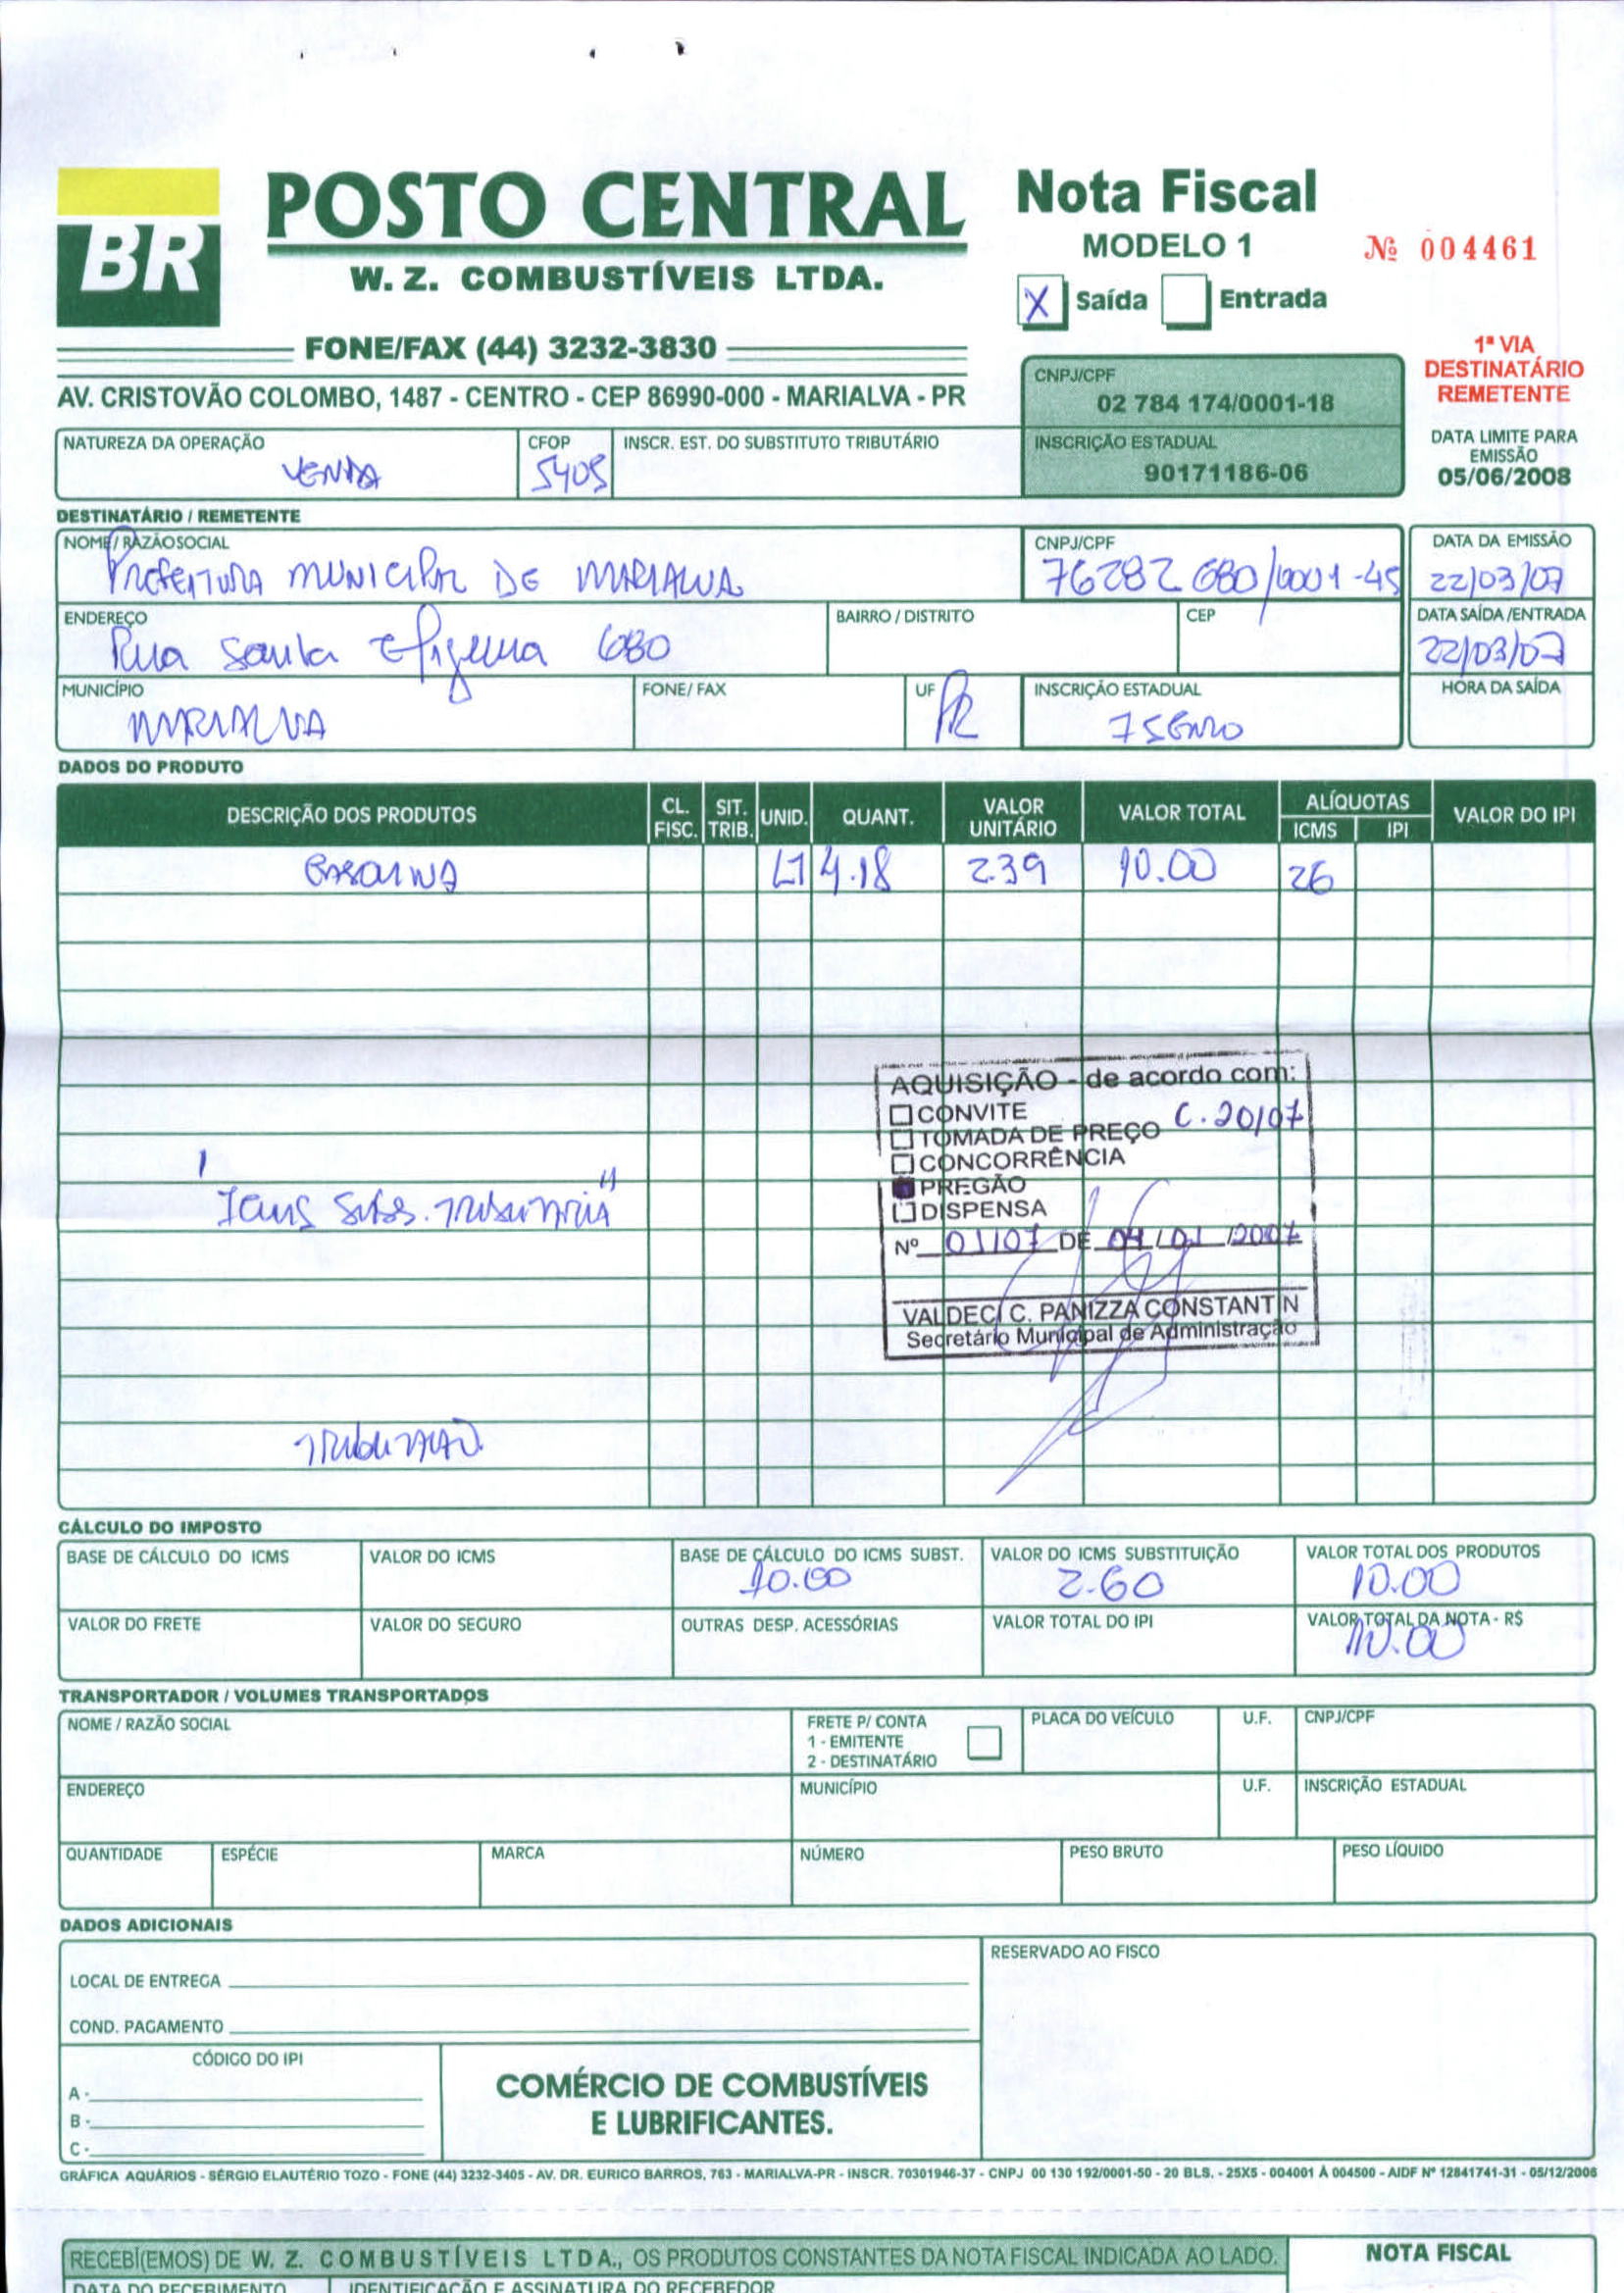 BR
POSTO CENTRAL
W. Z. COMBUSTÍVEIS LTDA.
FONE/FAX (44) 3232-3830
AV. CRISTOVÃO COLOMBO, 1487 - CENTRO - CEP 86990-000 - MARIALVA - PR
Nota Fiscal
MODELO 1
Nº 004461
X Saída Entrada
1ª VIA
DESTINATÁRIO
REMETENTE
CNPJ/CPF
02 784 174/0001-18
INSCRIÇÃO ESTADUAL
90171186-06
DATA LIMITE PARA
EMISSÃO
05/06/2008
NATUREZA DA OPERAÇÃO CFOP INSCR. EST. DO SUBSTITUTO TRIBUTÁRIO
VENDA 5405
DESTINATÁRIO / REMETENTE
NOME / RAZÃO SOCIAL CNPJ/CPF DATA DA EMISSÃO
PREFEITURA MUNICIPAL DE MARIALVA 76282 680/0001-45 22/03/07
ENDEREÇO BAIRRO / DISTRITO CEP DATA SAÍDA /ENTRADA
Rua Santa Efigenia 680 22/03/07
MUNICÍPIO FONE/ FAX UF INSCRIÇÃO ESTADUAL HORA DA SAÍDA
MARIALVA PR
DADOS DO PRODUTO
DESCRIÇÃO DOS PRODUTOS CL. FISC. SIT. TRIB. UNID. QUANT. VALOR UNITÁRIO VALOR TOTAL ALÍQUOTAS ICMS IPI VALOR DO IPI
GASOLINA LT 4.18 2.39 10.00 26
AQUISIÇÃO - de acordo com:
CONVITE
TOMADA DE PREÇO C. 20/07
CONCORRÊNCIA
PREGÃO
DISPENSA
Nº 01/07 DE 04/01/2007
VALDECI C. PANIZZA CONSTANTIN
Secretário Municipal de Administração
" Icms Subs. TRIBUTÁRIA "
TRIBUTAÇÃO
CÁLCULO DO IMPOSTO
BASE DE CÁLCULO DO ICMS VALOR DO ICMS BASE DE CÁLCULO DO ICMS SUBST. VALOR DO ICMS SUBSTITUIÇÃO VALOR TOTAL DOS PRODUTOS
10.00 2.60 10.00
VALOR DO FRETE VALOR DO SEGURO OUTRAS DESP. ACESSÓRIAS VALOR TOTAL DO IPI VALOR TOTAL DA NOTA - R$
10.00
TRANSPORTADOR / VOLUMES TRANSPORTADOS
NOME / RAZÃO SOCIAL FRETE P/ CONTA PLACA DO VEÍCULO U.F. CNPJ/CPF
1 - EMITENTE
2 - DESTINATÁRIO
ENDEREÇO MUNICÍPIO U.F. INSCRIÇÃO ESTADUAL
QUANTIDADE ESPÉCIE MARCA NÚMERO PESO BRUTO PESO LÍQUIDO
DADOS ADICIONAIS
LOCAL DE ENTREGA
COND. PAGAMENTO
RESERVADO AO FISCO
CÓDIGO DO IPI
A -
B -
C -
COMÉRCIO DE COMBUSTÍVEIS
E LUBRIFICANTES.
GRÁFICA AQUÁRIOS - SÉRGIO ELAUTÉRIO TOZO - FONE (44) 3232-3405 - AV. DR. EURICO BARROS, 763 - MARIALVA-PR - INSCR. 70301946-37 - CNPJ 00 130 192/0001-50 - 20 BLS. - 25X5 - 004001 À 004500 - AIDF Nº 12841741-31 - 05/12/2006
RECEBI(EMOS) DE W. Z. COMBUSTÍVEIS LTDA., OS PRODUTOS CONSTANTES DA NOTA FISCAL INDICADA AO LADO.
NOTA FISCAL
DATA DO RECEBIMENTO IDENTIFICAÇÃO E ASSINATURA DO RECEBEDOR